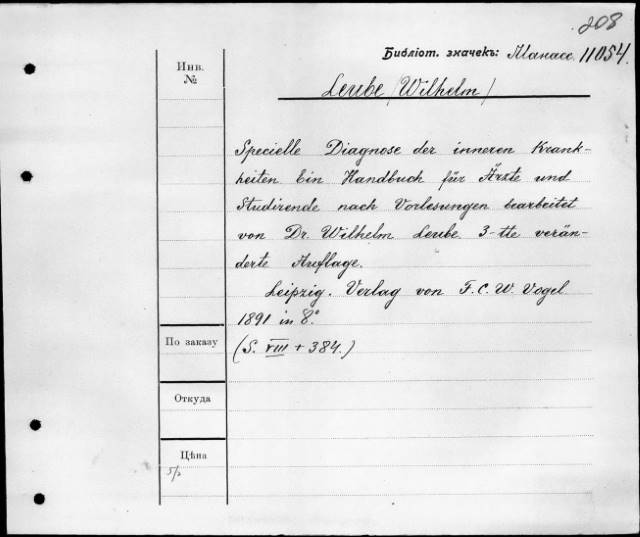 208
Библіот. значекъ: Манасс. 11054.
Инв.
№
Leube (Wilhelm)
Specielle Diagnose der inneren Krank-
heiten. Ein Handbuch für Ärzte und
Studirende nach Vorlesungen bearbeitet
von Dr. Wilhelm Leube 3-tte verän-
derte Auflage.
Leipzig. Verlag von F. C. W. Vogel
1891 in 8°.
По заказу
(S. VIII + 384.)
Откуда
Цѣна